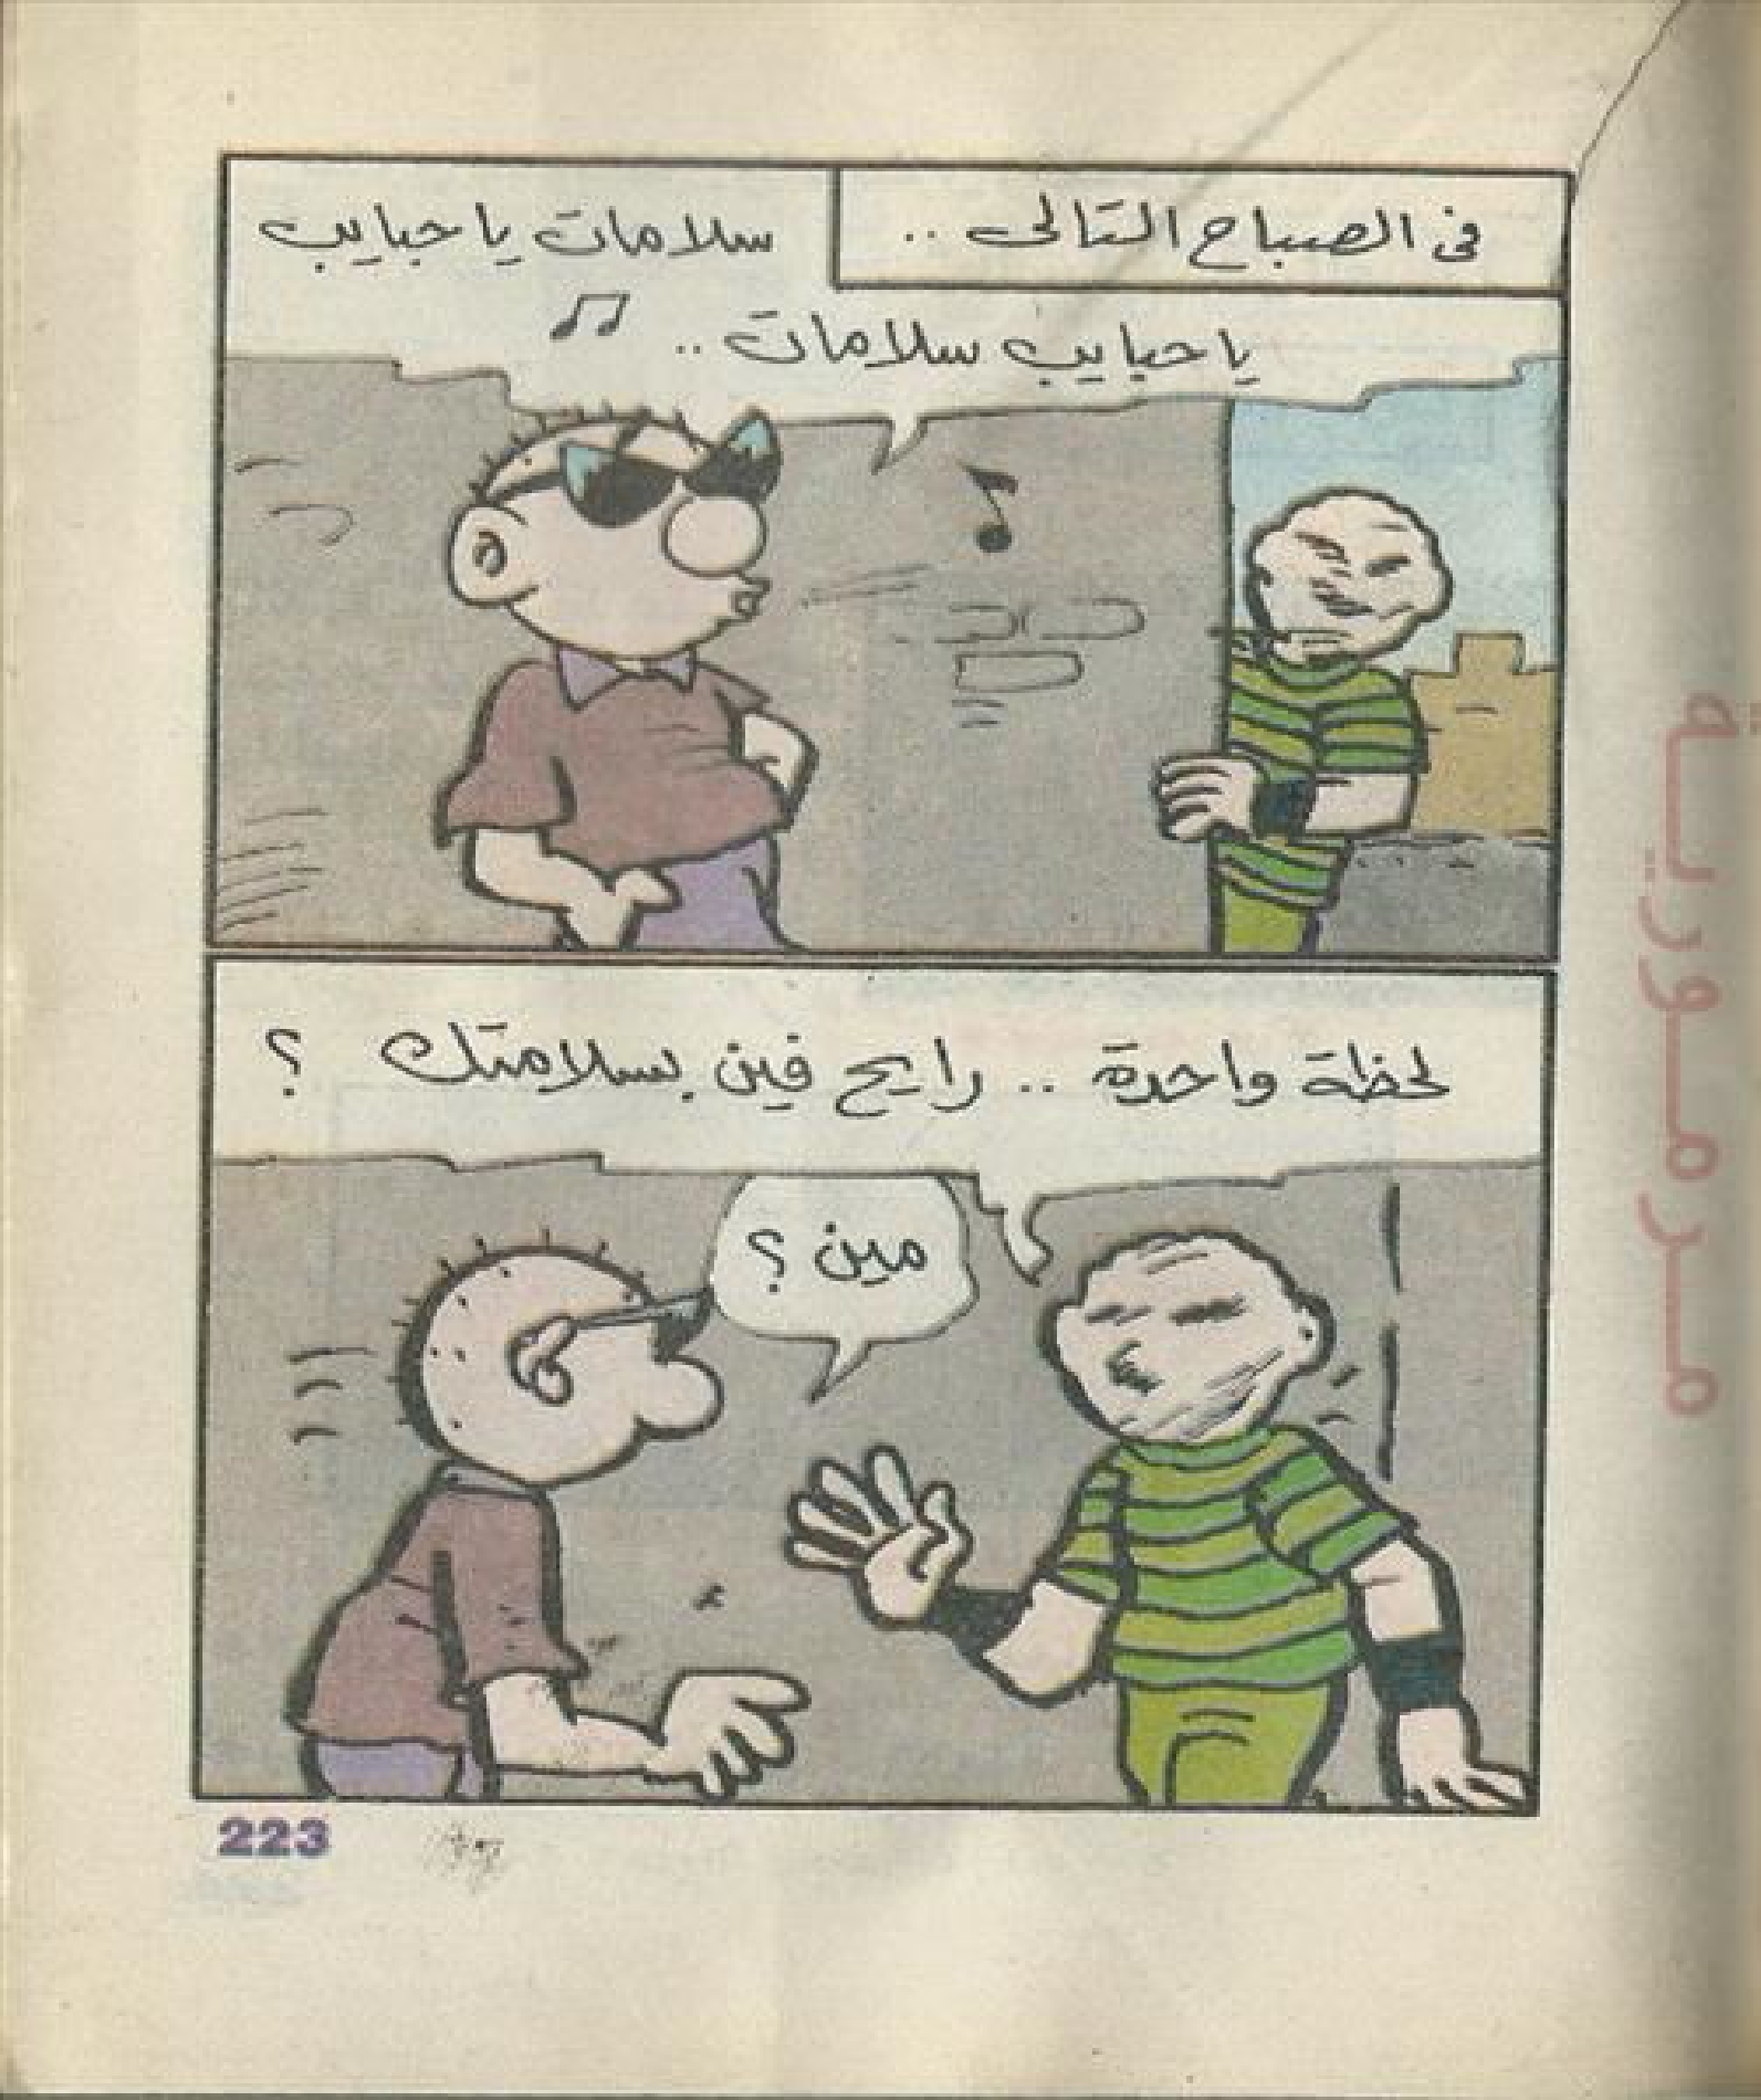 فى الصباح التالى ..
سلامات يا حبايب
يا حبايب سلامات ..
لحظة واحدة .. رايح فين بسلامتك ؟
مين ؟
223
مرمورية